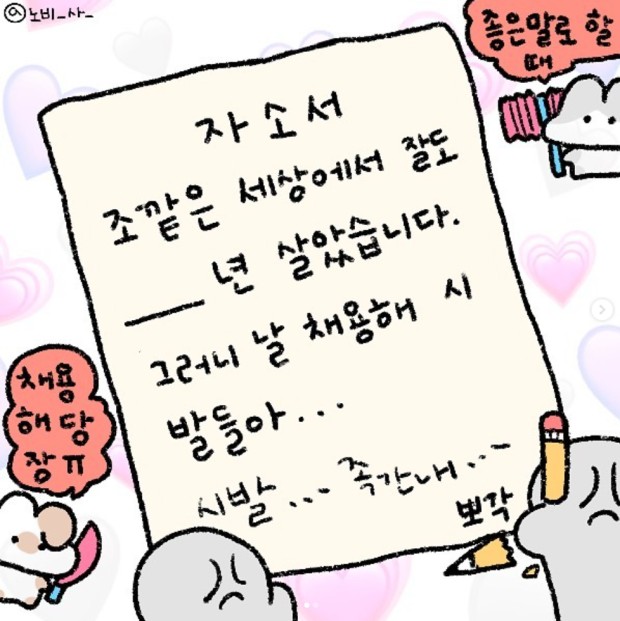 @노비_사_
좋은말로 할
때
자소서
조깥은 세상에서 잘도
___년 살았습니다.
그러니 날 채용해 시
발들아...
시발... 족간내...
뽀각
채용
해당
장ㅠ